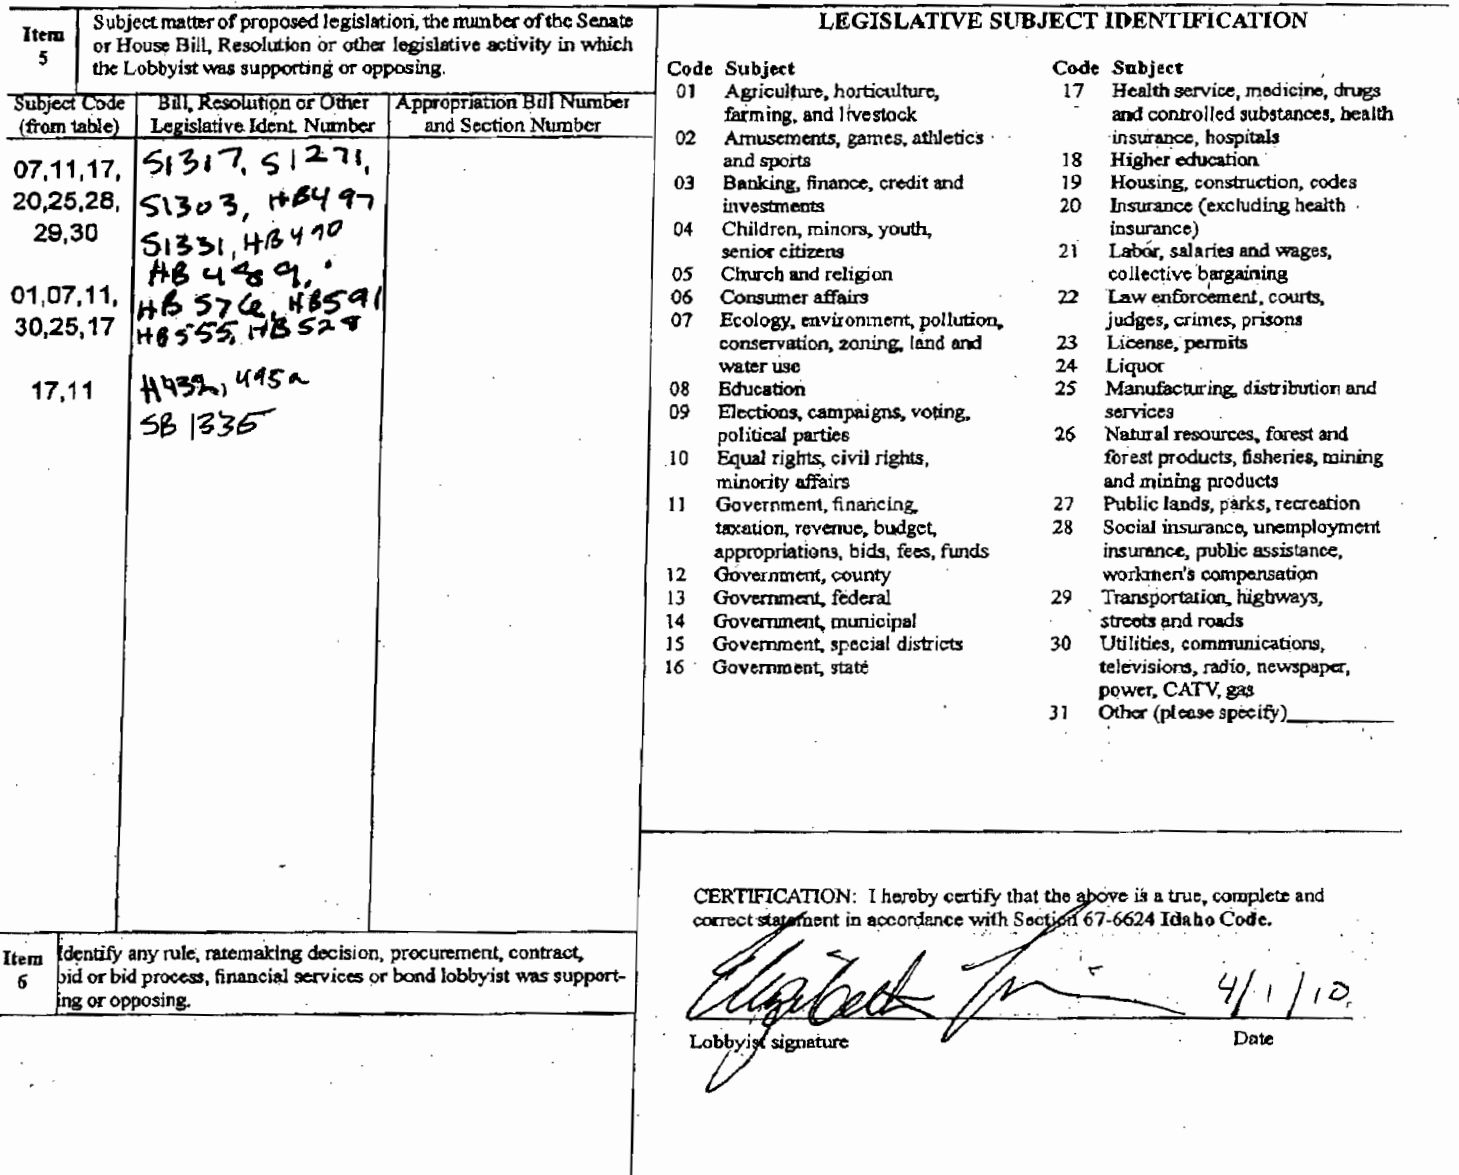 Item
5
Subject matter of proposed legislation, the number of the Senate
or House Bill, Resolution or other legislative activity in which
the Lobbyist was supporting or opposing.
Subject Code
(from table)
Bill, Resolution or Other
Legislative Ident. Number
Appropriation Bill Number
and Section Number
07,11,17,
20,25,28,
29,30
S1317, S1271,
S1303, HB497
S1331, HB490
HB489,
01,07,11,
30,25,17
HB576, HB591
HB555, HB529
17,11
H432, 495a
SB 1335
LEGISLATIVE SUBJECT IDENTIFICATION
Code Subject
01 Agriculture, horticulture,
farming, and livestock
02 Amusements, games, athletics
and sports
03 Banking, finance, credit and
investments
04 Children, minors, youth,
senior citizens
05 Church and religion
06 Consumer affairs
07 Ecology, environment, pollution,
conservation, zoning, land and
water use
08 Education
09 Elections, campaigns, voting,
political parties
10 Equal rights, civil rights,
minority affairs
11 Government, financing,
taxation, revenue, budget,
appropriations, bids, fees, funds
12 Government, county
13 Government, federal
14 Government, municipal
15 Government, special districts
16 Government, state
Code Subject
17 Health service, medicine, drugs
and controlled substances, health
insurance, hospitals
18 Higher education
19 Housing, construction, codes
20 Insurance (excluding health
insurance)
21 Labor, salaries and wages,
collective bargaining
22 Law enforcement, courts,
judges, crimes, prisons
23 License, permits
24 Liquor
25 Manufacturing, distribution and
services
26 Natural resources, forest and
forest products, fisheries, mining
and mining products
27 Public lands, parks, recreation
28 Social insurance, unemployment
insurance, public assistance,
workmen's compensation
29 Transportation, highways,
streets and roads
30 Utilities, communications,
televisions, radio, newspaper,
power, CATV, gas
31 Other (please specify)
CERTIFICATION: I hereby certify that the above is a true, complete and
correct statement in accordance with Section 67-6624 Idaho Code.
Elizabeth
4/1/10
Lobbyist signature
Date
Item
6
Identify any rule, ratemaking decision, procurement, contract,
bid or bid process, financial services or bond lobbyist was support-
ing or opposing.